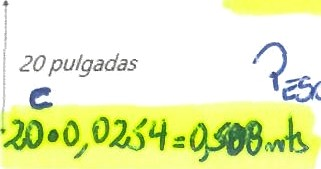 20 pulgadas
PESO
C
20•0,0254=0,508 mts